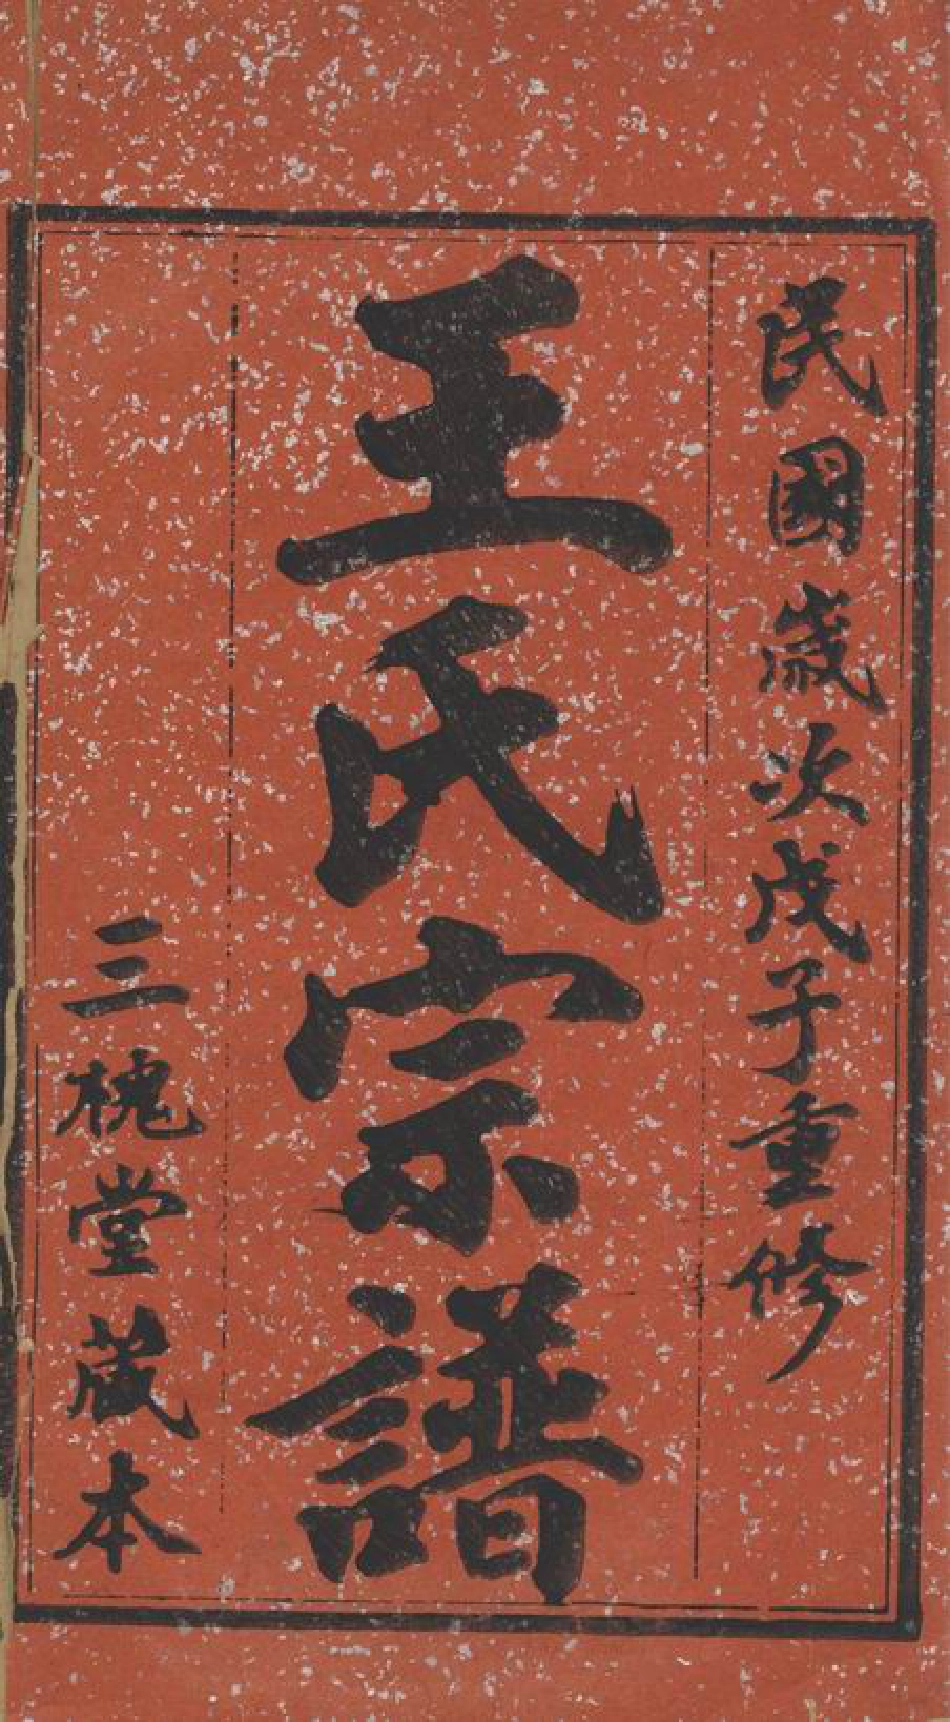 民國歲次戊子重修
王氏宗譜
三槐堂藏本